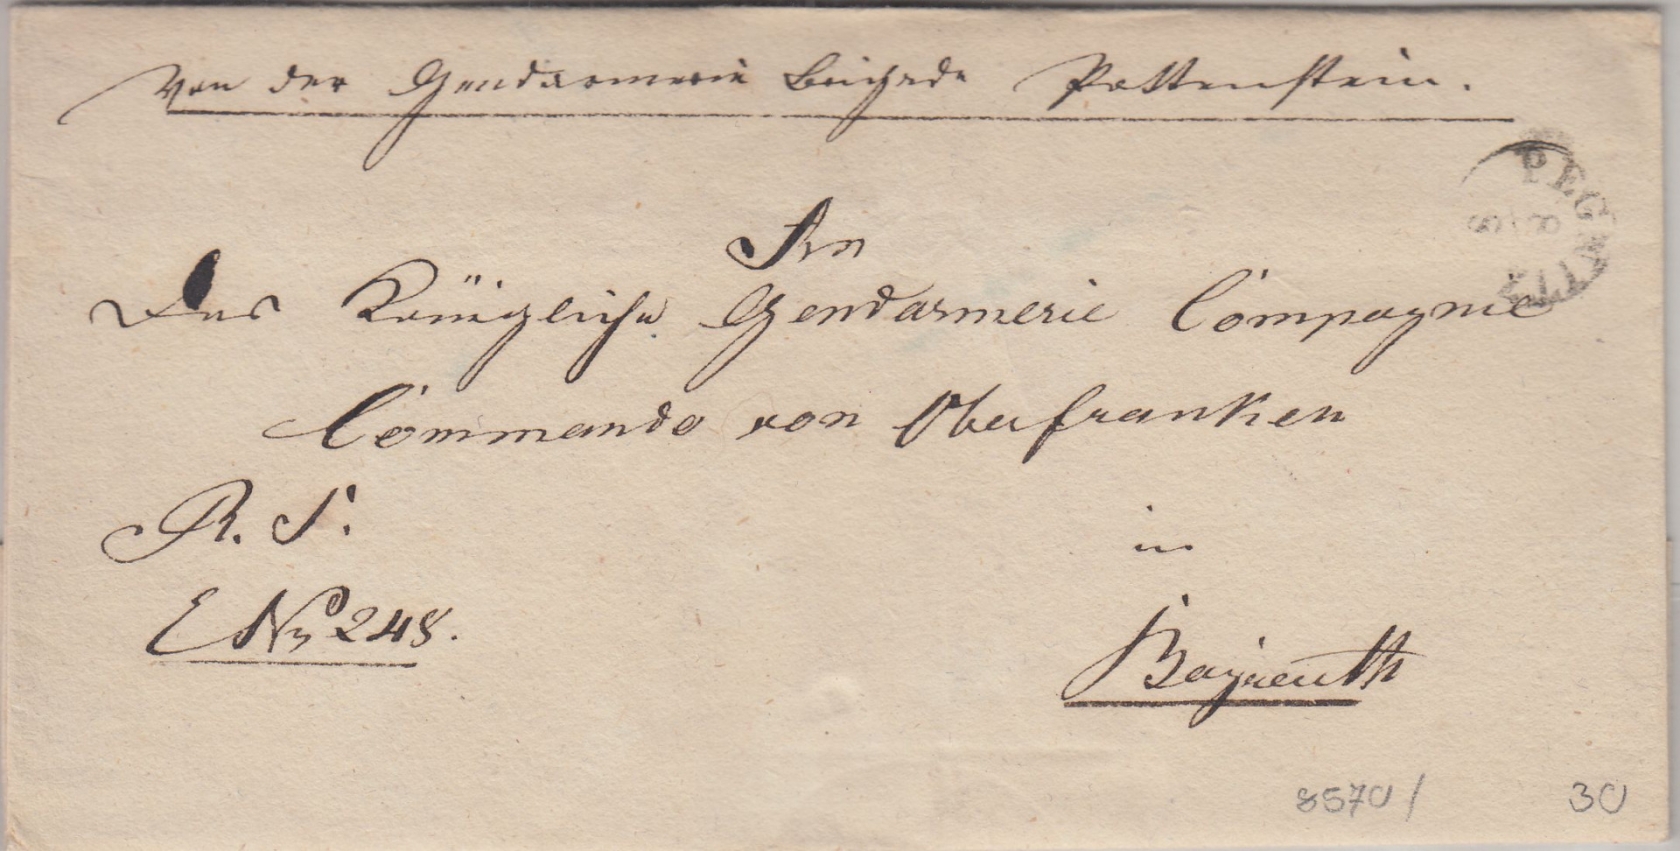 Von der Gendarmerie Brigade Pottenstein.
PEGNITZ
8
An
Das Königliche Gendarmerie Compagnie
Commando von Oberfranken
R. S.
E No 248.
in
Bayreuth
8570/
30